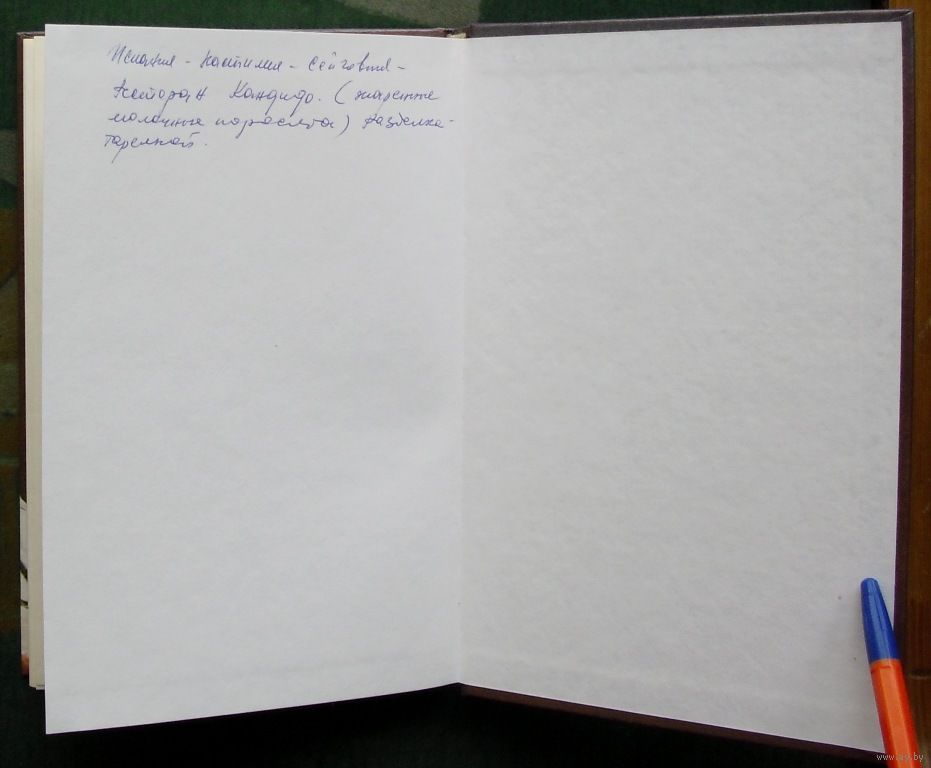 Испания - Кастилия - Сеговия -
Ресторан Кандидо. (жаренные
молочные поросята) Разделка -
тарелкой.
www.ay.by